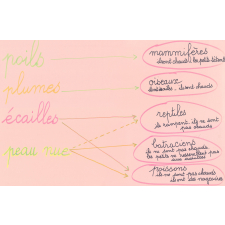 poils
plumes
écailles
peau nue
mammifères
ils sont chauds, les petits tètent
oiseaux
ils sont chauds
reptiles
ils rampent, ils ne sont
pas chauds
batraciens
ils ne sont pas chauds
les petits ne ressemblent pas
aux adultes
poissons
ils ne sont pas chauds
ils ont des nageoires